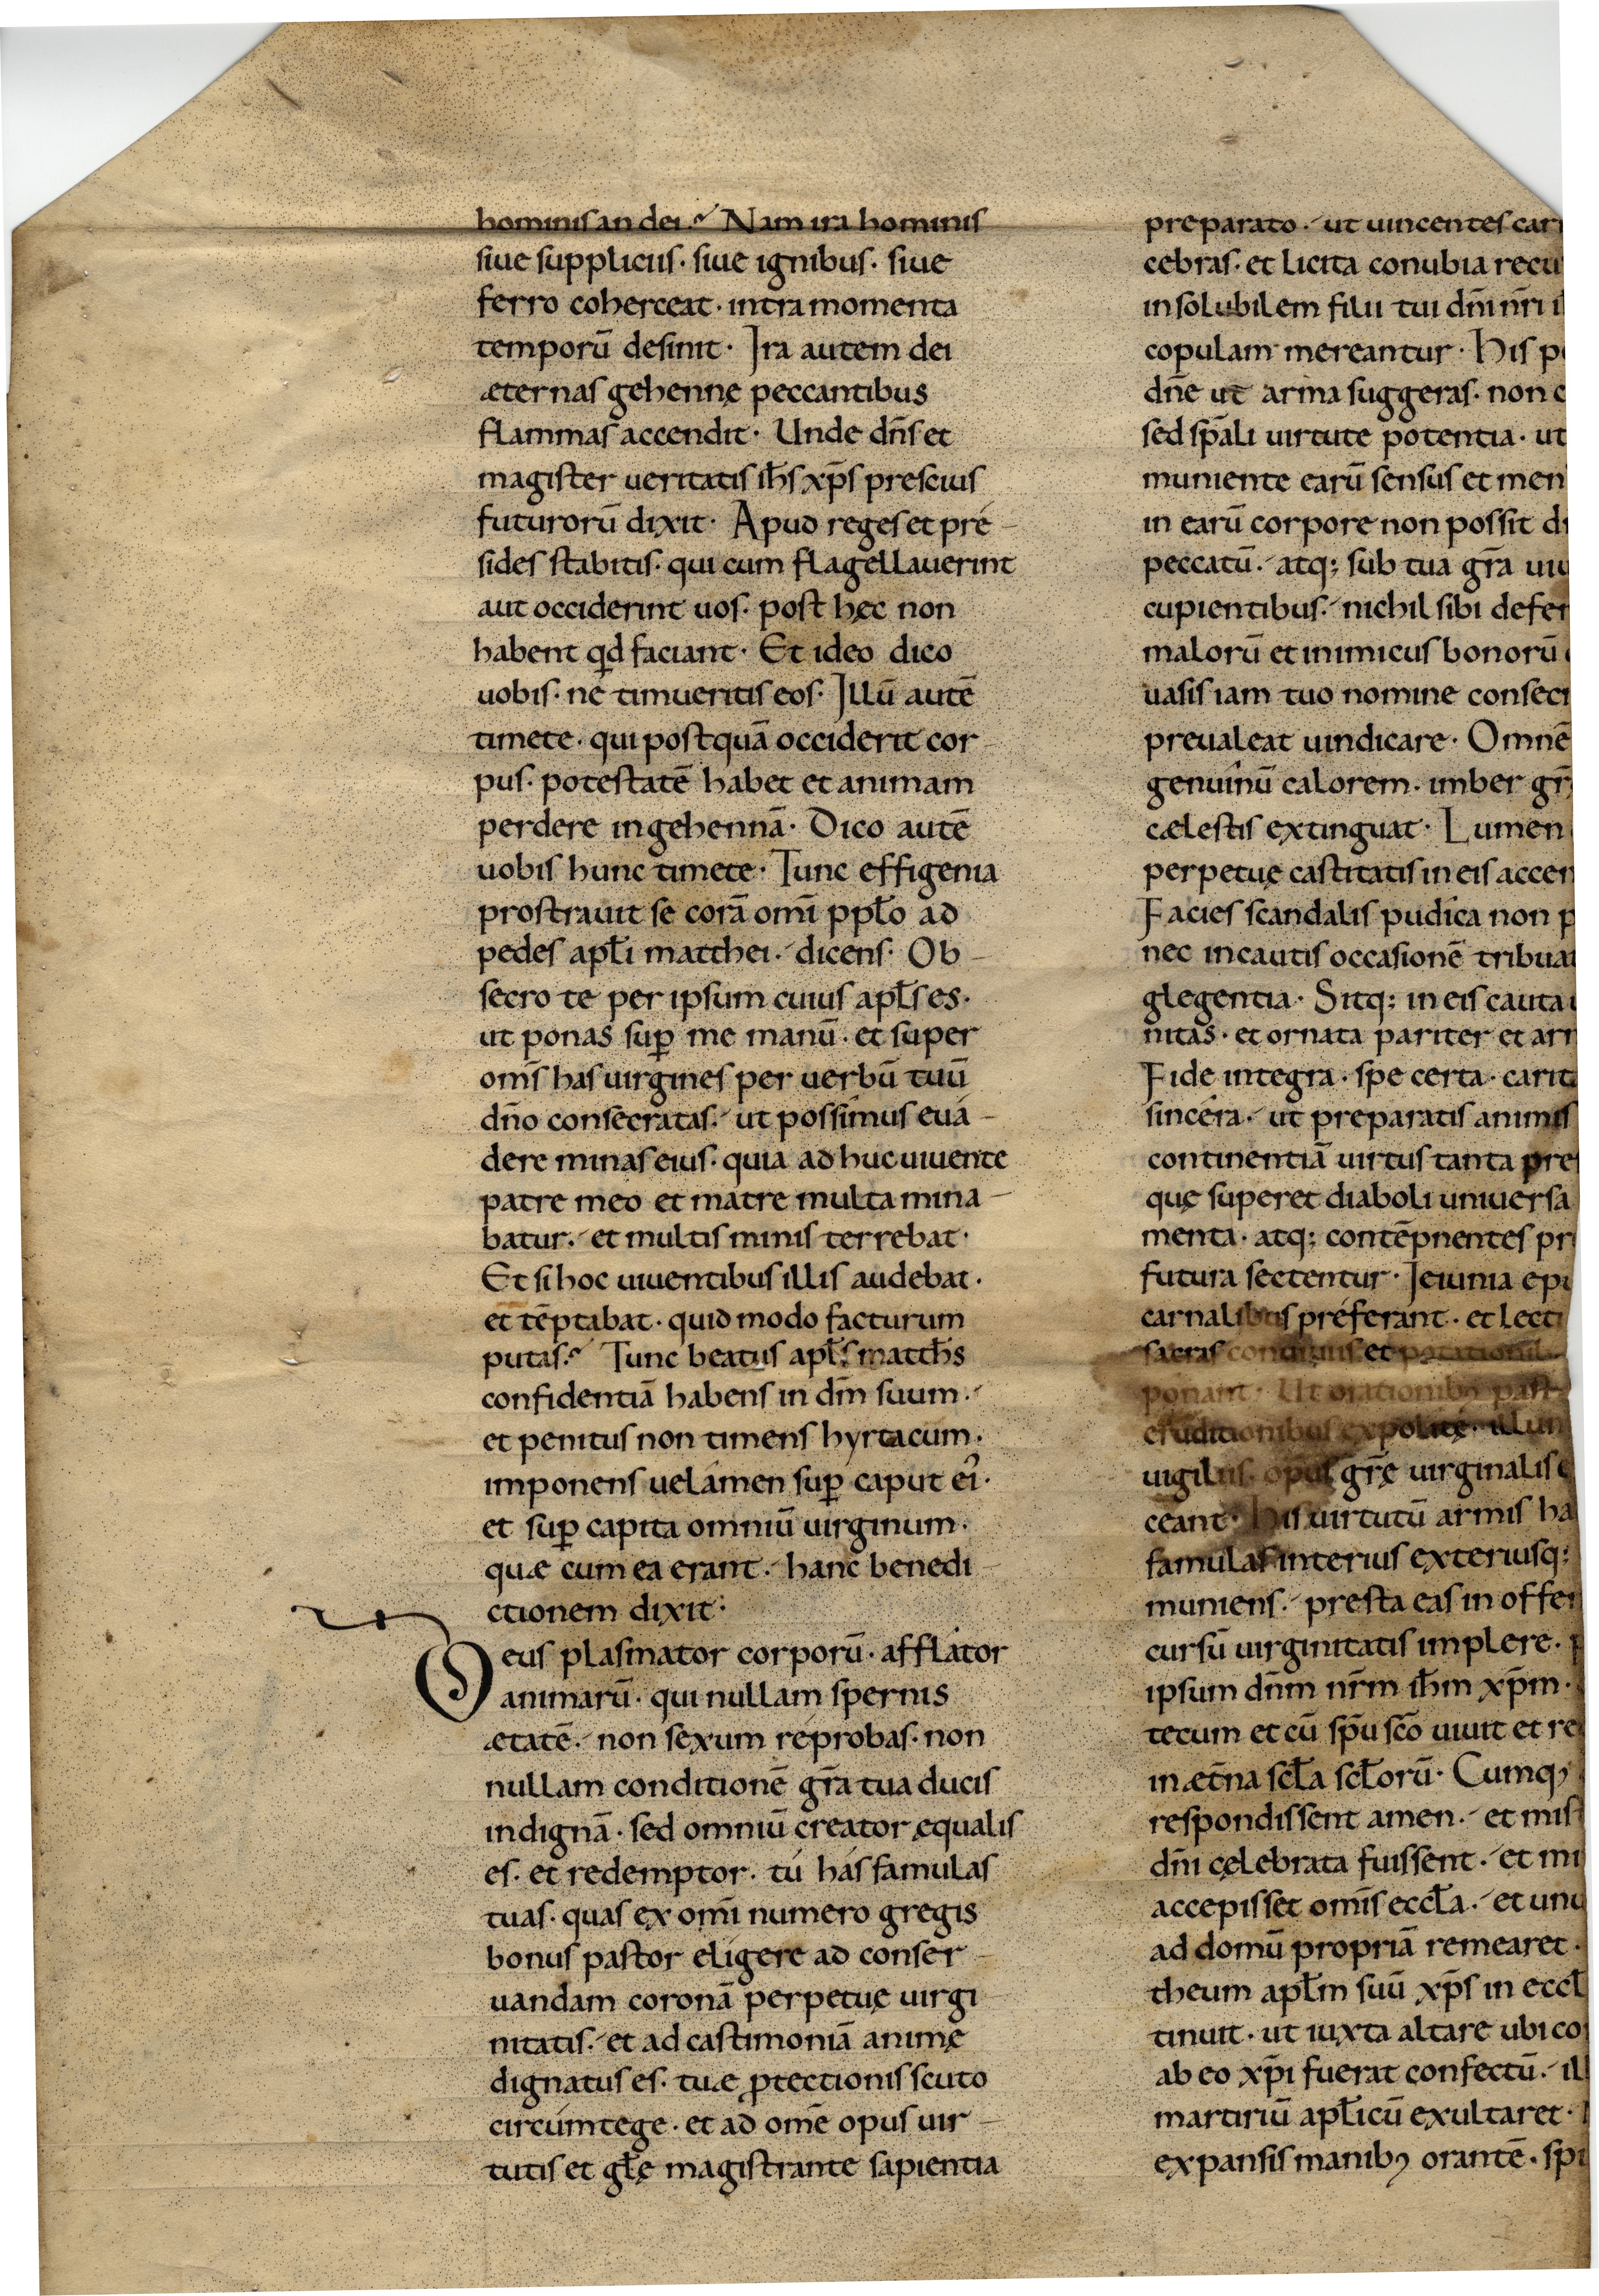 hominis an dei.᷒ Nam ira hominis
siue suppliciis· siue ignibus· siue
ferro coherceat· intra momenta
temporū desinit· Ira autem dei
æternas gehennę peccantibus
flammas accendit· Unde dn̄s et
magister ueritatis ih̄s xp̄s prescius
futurorū dixit· Apud reges et pre
sides stabitis· qui cum flagellauerint
aut occiderint uos· post hęc non
habent qd faciant· Et ideo dico
uobis· ne timueritis eos· Illū autē
timete· qui postquā occiderit cor
pus· potestatē habet et animam
perdere in gehennā· Dico autē
uobis hunc timete· Tunc effigenia
prostrauit se corā om̄i ppl̄o ad
pedes apl̄i matthei· dicens· Ob
secro te per ipsum cuius apl̄s es·
ut ponas suꝑ me manū· et super
om̄s has uirgines per uerbū tuū
dn̄o consecratas· ut possimus eua
dere minas eius· quia ad huc uiuente
patre meo et matre multa mina
batur· et multis minis terrebat·
Et si hoc uiuentibus illis audebat·
et tēptabat· quid modo facturum
putas.᷒ Tunc beatus apl̄s matth̄s
confidentiā habens in dn̄m suum·
et penitus non timens hyrtacum·
imponens uelamen suꝑ caput ei᾽·
et suꝑ capita omniū uirginum·
quæ cum ea erant· hanc benedi
ctionem dixit·
Deus plasmator corporū· afflator
animarū· qui nullam spernis
ætatē· non sexum reprobas· non
nullam conditionē gr̄a tua ducis
indignā· sed omniū creator ęqualis
es· et redemptor· tu has famulas
tuas· quas ex om̄i numero gregis
bonus pastor eligere ad conser
uandam coronā perpetuę uirgi
nitatis· et ad castimoniā animę
dignatus es· tuæ ꝓtectionis scuto
circumtege· et ad omē opus uir
tutis et gl̄ę magistrante sapientia
preparato· ut uincentes car
cebras· et licita conubia recu
insolubilem filii tui dn̄i nr̄i i
copulam mereantur· His p
dn̄e ut arma suggeras· non c
sed sp̄ali uirtute potentia· ut
muniente earū sensus et men
in earū corpore non possit d
peccatū· atq; sub tua gr̄a uiu
cupientibus· nichil sibi defen
malorū et inimicus bonorū
uasis iam tuo nomine consec
preualeat uindicare· Omnē
genuinū calorem· imber gr̄
cælestis extinguat· Lumen
perpetuę castitatis in eis accen
Facies scandalis pudica non p
nec incautis occasionē tribua
glegentia· Sitq; in eis cauta
nitas· et ornata pariter et arm
Fide integra· spe certa· carit
sincera· ut preparatis animis
continentiā uirtus tanta pre
quę superet diaboli uniuersa
menta· atq; contēpnentes pr
futura sectentur· Ieiunia epu
carnalibus preferant· et lecti
sacras conuiuiis et potationib
ponant· Ut orationib; past
eruditionibus expolitę· illum
uigiliis· opus gr̄ę uirginalis e
ceant· His uirtutū armis ha
famulas interius exteriusq;
muniens· presta eas in offen
cursū uirginitatis implere· p
ipsum dn̄m nr̄m ih̄m xp̄m·
tecum et cū sp̄u sc̄o uiuit et re
in æt̄na scl̄a scl̄orū· Cumq;
respondissent amen· et mist
dn̄i cęlebrata fuissent· et mi
accepisset om̄is eccl̄a· et unu
ad domū propriā remearet·
theum apl̄m suū xp̄s in eccl̄
tinuit· ut iuxta altare ubi co
ab eo xp̄i fuerat confectū· ill
martiriū apl̄icū exultaret·
expansis manib; orantē· spi